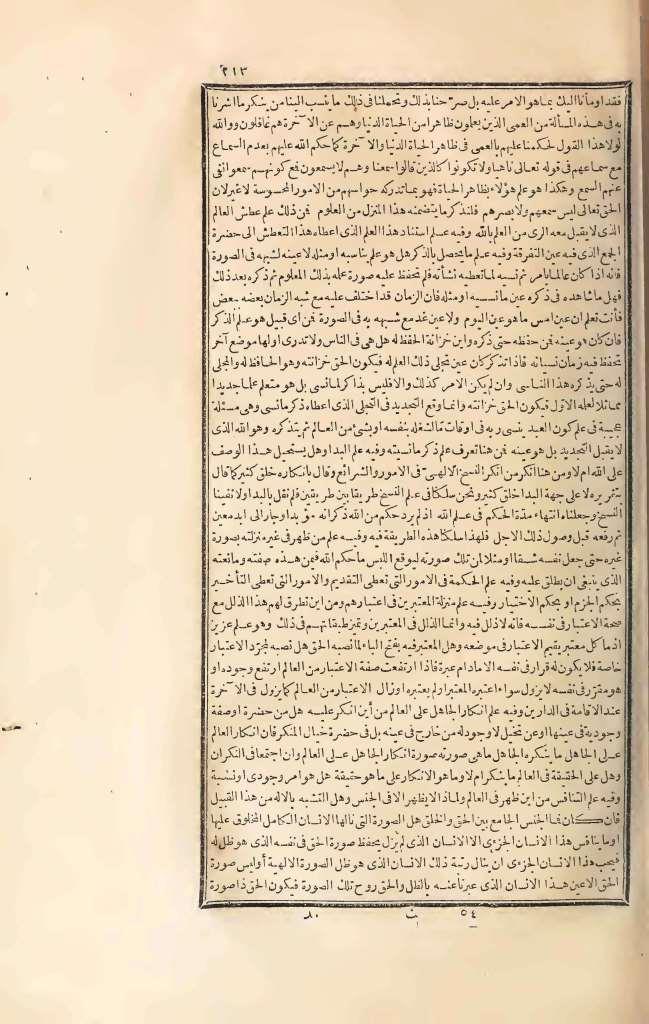 ٢١٣
فقد اومأنا اليك بما هو الامر عليه بل صرحنا بذلك وتحملنا فى ذلك ما ينسب الينا من ينكر ما أشرنا
به فى هذه المسألة من العمى الذين يعلمون ظاهرا من الحياة الدنيا وهم عن الآخرة هم غافلون ووالله
لولا هذا القول لحكمنا عليهم بالعمى فى ظاهر الحياة الدنيا والآخرة كما حكم الله عليهم بعدم السماع
مع سماعهم فى قوله تعالى ناهيا ولا تكونوا كالذين قالوا سمعنا وهم لا يسمعون فمع كونهم سمعوا نفى
عنهم السمع وهكذا هو علم هؤلاء بظاهر الحياة فهو بما تدركه حواسهم من الامور المحسوسة لا غير لان
الحق تعالى ليس سمعهم ولا بصرهم فلنذكر ما يتضمنه هذا المنزل من العلوم فمن ذلك علم عطش العالم
الذى لا يقبل معه الرى من العلم بالله وفيه علم استناد هذا العلم الذى اعطاه هذا التعطش الى حضرة
الجمع الذى فيه عين التفرقة وفيه علم ما يحصل بالذكر هل هو علم يناسبه او مثله لا عينه لشبهه فى الصورة
فانه اذا كان عالما بامر ثم نسيه لما تعطيه نشأته فلم تحفظ عليه صورة علمه بذلك المعلوم ثم ذكره بعد ذلك
فهل ما شاهده فى ذكره عين ما نسيه او مثله فان الزمان قد اختلف عليه مع شبه الزمان بعضه ببعض
فأنت تعلم ان عين امس ما هو عين اليوم ولا عين غد مع شبهه به فى الصورة فمن اى قبيل هو علم الذكر
فان كان هو عينه فمن حفظه حتى ذكره واين خزانة الحفظ له هل هى فى الناس ولا تدرى او لها موضع آخر
تحفظ فيه زمان نسيانه فاذا تذكر كان عين تجلى ذلك العلم له فيكون الحق خزانته وهو الحافظ له والمجلى
له حتى يذكره هذا الناسى وان لم يكن الامر كذلك والا فليس بذاكر لما نسى بل هو متعلم علما جديدا
مماثلا لعلمه الاول فيكون الحق خزانته وانما وقع التجديد فى التجلى الذى اعطاه ذكر ما نسى وهى مسئلة
عجيبة فى علم كون العبد ينسى ربه فى اوقات ما لشغله بنفسه او بشئ من العالم ثم يتذكره وهو الله الذى
لا يقبل التجديد بل هو عينه فمن هنا تعرف علم ذكر ما نسيته وفيه علم البدا وهل يستحيل هذا الوصف
على الله ام لا ومن هنا انكر من انكر النسخ الالهى فى الامور والشرائع وقال بانكاره خلق كثير كما قال
بتقريره لا على جهة البدا خلق كثير ونحن سلكنا فى علم النسخ طريقا بين طريقين فلم نقل بالبدا ولا نفينا
النسخ وجعلناه انتهاء مدة الحكم فى علم الله اذ لم يرد حكم من الله ذكر انه مؤبد او جار الى ابد معين
ثم رفعه قبل وصول ذلك الاجل فلهذا سلكنا هذه الطريقة فيه وفيه علم من ظهر فى غير منزلته بصورة
غيره حتى جعل نفسه شقا او مثلا لمن تلك صورته ليوقع اللبس ما حكم الله فيمن هذه صفته وما نعته
الذى ينبغى ان يطلق عليه وفيه علم الحكمة فى الامور التى تعطى التقديم والامور التى تعطى التأخير
بحكم الجزم او بحكم الاختيار وفيه علم منزلة المعتبرين فى اعتبارهم ومن اين تطرق لهم هذا الذلل مع
صحة الاعتبار فى نفسه فانه لا ذلل فيه وانما الذلل فى المعتبرين وتميز طبقاتهم فى ذلك وهو علم عزيز
اذ ما كل معتبر يقيم الاعتبار فى موضعه وهل المعتبر فيه بفتح الباء لما نصبه الحق هل نصبه لمجرد الاعتبار
خاصة فلا يكون له قرار فى نفسه الا مادام عبرة فاذا ارتفعت صفة الاعتبار من العالم ارتفع وجوده او
هو مقرر فى نفسه لا يزول سواء اعتبره المعتبر او لم يعتبره او زال الاعتبار من العالم كما يزول فى الآخرة
عند الاقامة فى الدارين وفيه علم انكار الجاهل على العالم من أين انكر عليه هل من حضرة او صفة
وجودية فى عينها او عن تخيل لا وجود له من خارج فى عينه بل فى حضرة خيال المنكر فان انكار العالم
على الجاهل ما ينكره الجاهل ما هى صورته صورة انكار الجاهل على العالم وان اجتمعا فى النكران
وهل على الحقيقة فى العالم ما ينكر ام لا وما هو الانكار على ما هو حقيقة هل هو امر وجودى او نسبة
وفيه علم التنافس من اين ظهر فى العالم ولماذا لا يظهر الا فى الجنس وهل التشبه بالاله من هذا القبيل
فان كان فما الجنس الجامع بين الحق والخلق هل الصورة التى نالها الانسان الكامل المخلوق عليها
او ما ينافس هذا الانسان الجزءى الا الانسان الذى لم يزل يحفظ صورة الحق فى نفسه الذى هو ظل له
فيحب هذا الانسان الجزءى ان ينال رتبة ذلك الانسان الذى هو ظل الصورة الالهية أو ليس صورة
الحق الا عين هذا الانسان الذى عبرنا عنه بالظل والحق روح تلك الصورة فيكون الحق ذا صورة
٥٤